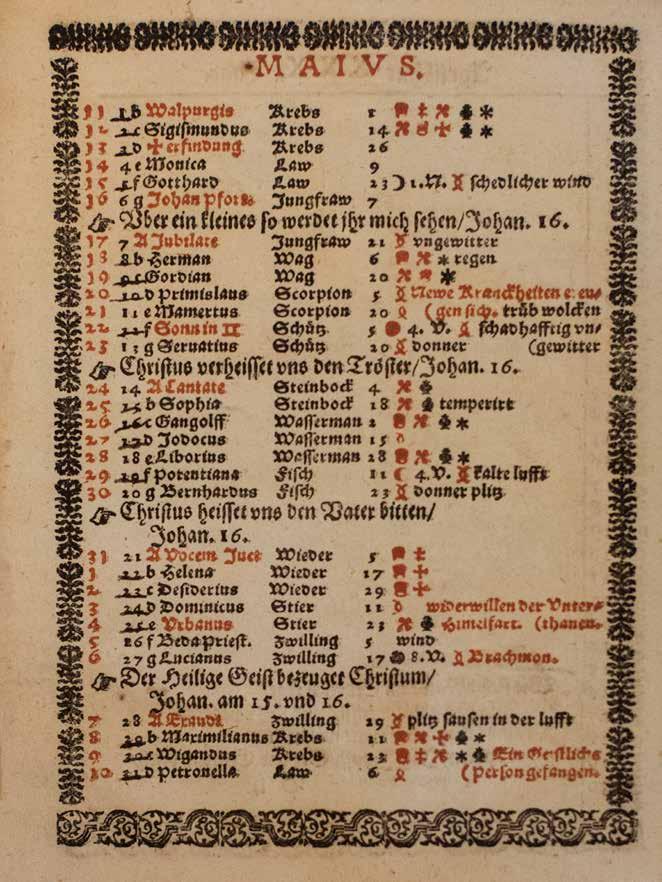 MAIVS.
11 1 b Walpurgis Krebs 1
12 2 c Sigismundus Krebs 14
13 3 d ✠ erfindung Krebs 26
14 4 e Monica Law 9
15 5 f Gotthard Law 23 ☽ 1. N. schedlicher wind
16 6 g Johan Pfort Jungfraw 7
☞ Vber ein kleines so werdet jhr mich sehen/Johan. 16.
17 7 A Jubilate Jungfraw 21 vngewitter
18 8 b Herman Wag 6 regen
19 9 c Gordian Wag 20
20 10 d Primislaus Scorpion 5 Newe Kranckheiten
21 11 e Mamertus Scorpion 20 (gen sich. trüb wolcken
22 12 f Sonn in II Schütz 5 4. V. schadhafftig vn-
23 13 g Seruatius Schütz 20 donner (gewitter
☞ Christus verheisset vns den Tröster/Johan. 16.
24 14 A Cantate Steinbock 4
25 15 b Sophia Steinbock 18 temperirt
26 16 c Gangolff Wasserman 2
27 17 d Jodocus Wasserman 15
28 18 e Liborius Wasserman 28
29 19 f Potentiana Fisch 11 ☾ 4. V. kalte lufft
30 20 g Bernhardus Fisch 23 donner plitz
☞ Christus heisset vns den Vater bitten/
Johan. 16.
31 21 A Vocem Juct Wieder 5
1 22 b Helena Wieder 17
2 23 c Desiderius Wieder 29
3 24 d Dominicus Stier 11 widerwillen der Vnter-
4 25 e Vrbanus Stier 23 Himelfart. (thanen.
5 26 f Beda Priest. Zwilling 5 wind
6 27 g Lucianus Zwilling 17 8. V. Brachmon.
☞ Der Heilige Geist bezeuget Christum/
Johan. am 15. vnd 16.
7 28 A Exaudi Zwilling 29 plitz sausen in der lufft
8 29 b Maximilianus Krebs 11
9 30 c Wigandus Krebs 23 Ein Geistliche
10 31 d Petronella Law 6 (Person gefangen.